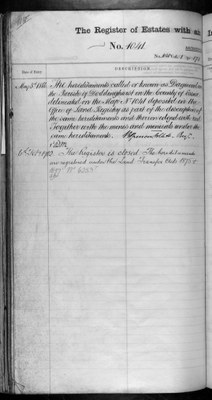 The Register of Estates with an
No. 1041
DESCRIPTION
Date of Entry
May 3rd 1865 The hereditaments called or known as Dagnam in
the Parish of Doddinghurst in the County of Essex
delineated on the Map No. 1041 deposited in the
Office of Land Registry as part of the description of
the same hereditaments and therein edged with red
Together with the mines and minerals under the
same hereditaments.
1903 The Register is closed. The hereditaments
are registered under the Land Transfer Acts 1875 &
1897